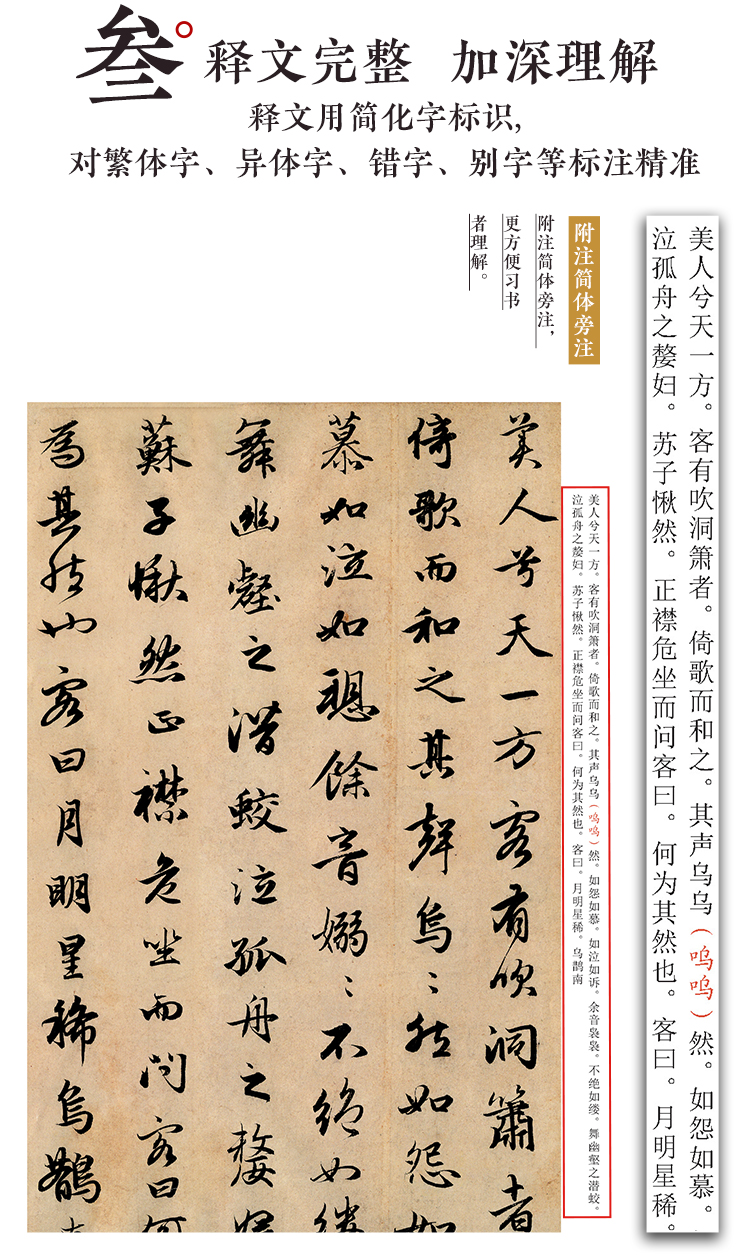 叁
释文完整 加深理解
释文用简化字标识,
对繁体字、异体字、错字、别字等标注精准
美人兮天一方。客有吹洞箫者。倚歌而和之。其声乌乌(呜呜)然。如怨如慕。
泣孤舟之嫠妇。苏子愀然。正襟危坐而问客曰。何为其然也。客曰。月明星稀。
附注简体旁注
附注简体旁注,
更方便习书
者理解。
美人兮天一方。客有吹洞箫者。倚歌而和之。其声乌乌(呜呜)然。如怨如慕。如泣如诉。余音袅袅。不绝如缕。舞幽壑之潜蛟。
泣孤舟之嫠妇。苏子愀然。正襟危坐而问客曰。何为其然也。客曰。月明星稀。乌鹊南
美人兮天一方客有吹洞簫者
倚歌而和之其聲烏〻然如怨如
慕如泣如愬餘音嫋〻不絕如縷
舞幽壑之潛蛟泣孤舟之嫠婦
蘇子愀然正襟危坐而問客曰何
為其然也客曰月明星稀烏鵲南